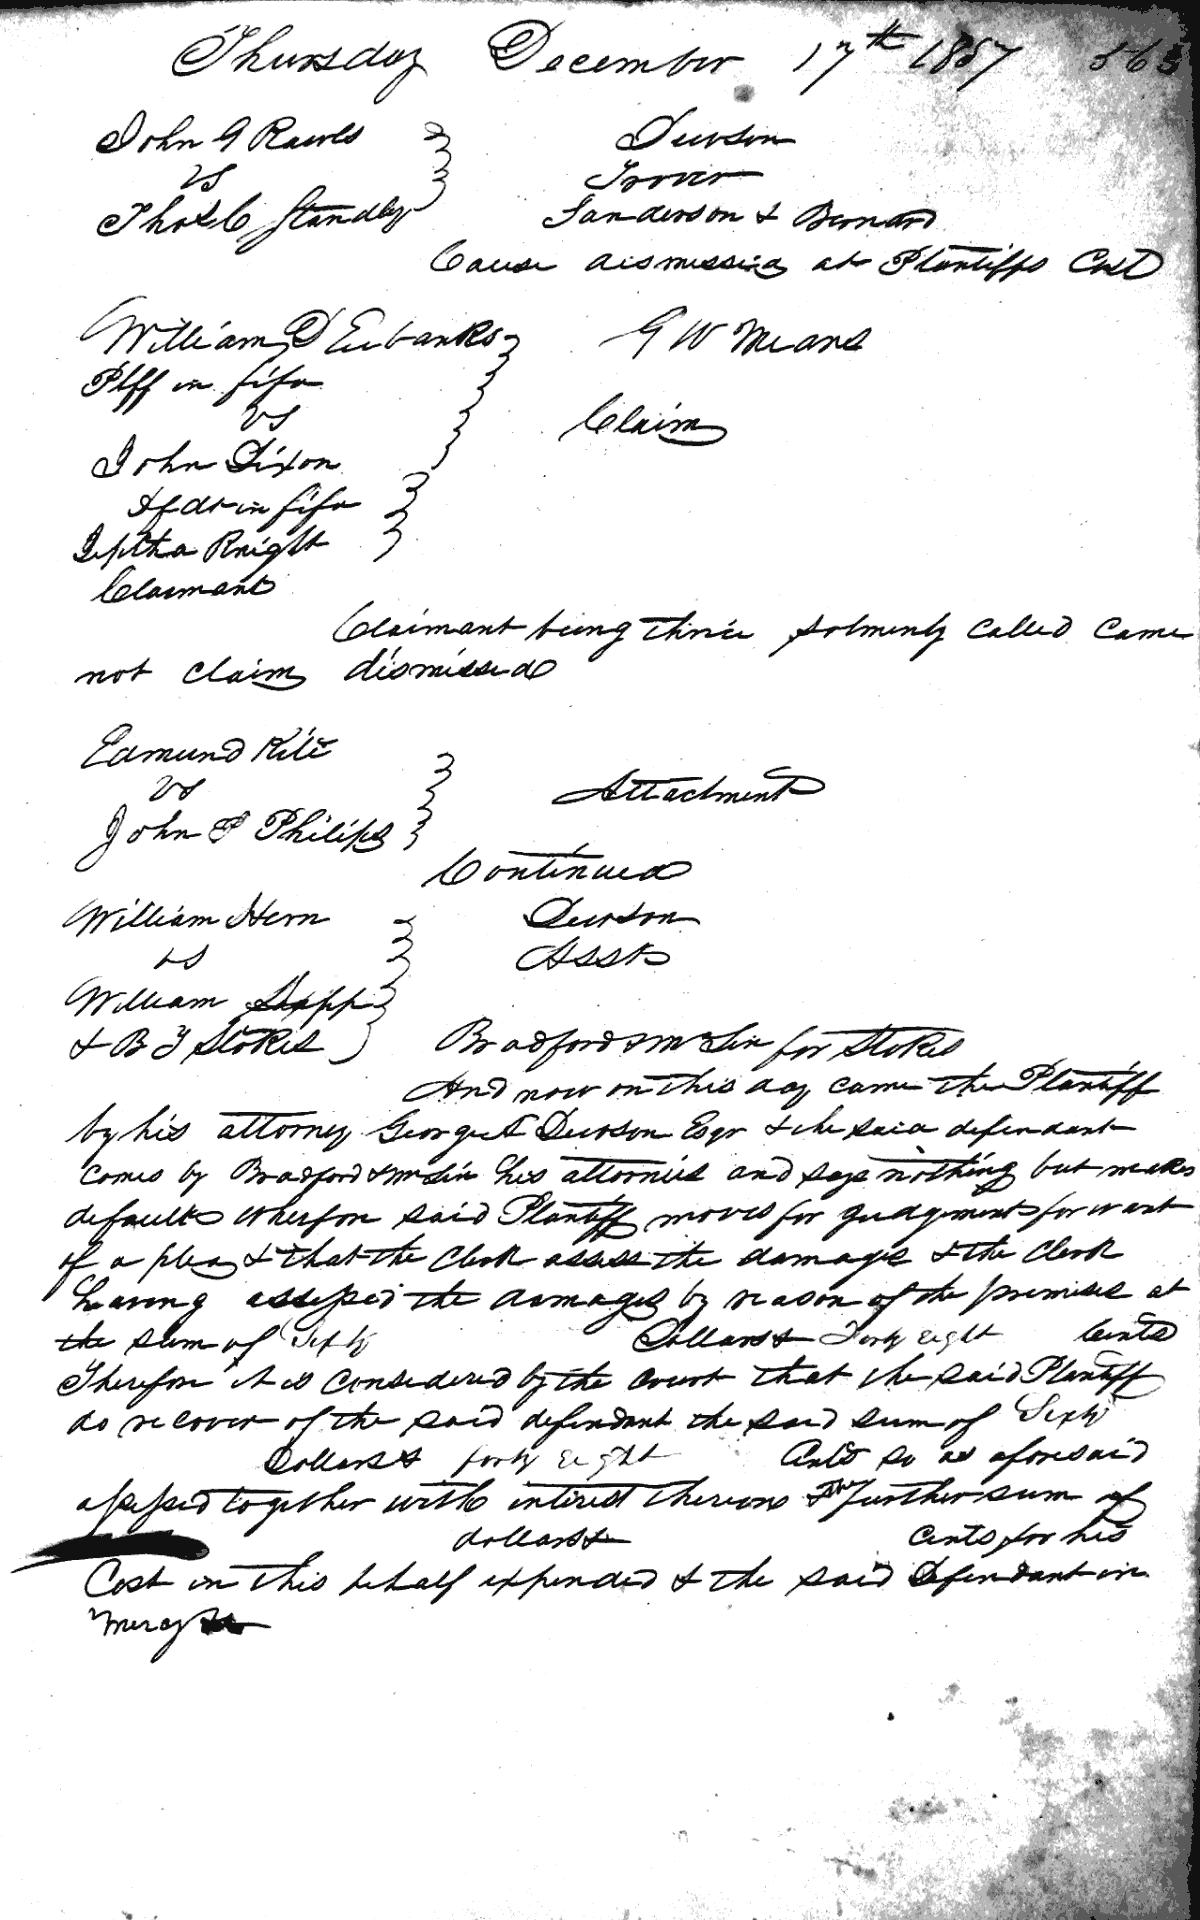 Thursday December 17th 1857 563
John G Rawls Dewson
vs Trover
Thos C Standley Sanderson & Bernard
Cause dismissed at Plantiffs Cost
William D Eubanks G W Means
Plff in fifa
vs Claim
John Dixon
dfdt in fifa
Jeptha Knight
Claimant
Claimant being thrice solmenly called came
not claim dismissed
Edmund Kile
vs Attachment
John P Philips
Continued
William Hern Dewson
vs Asst
William Sapp
& B F Stokes Bradford & McLin for Stokes
And now on this day came the Plantiff
by his attorney George S Dewson Esqr & the said defendant
comes by Bradford & McLin his attornies and says nothing but makes
default wherefore said Plantiff moves for judgement for want
of a plea & that the Clerk assess the damages & the Clerk
having assessed the damages by reason of the premises at
the sum of Sixty Dollars & Forty eight Cents
Therefore it is considered by the court that the said Plantiff
do recover of the said defendant the said sum of Sixty
Dollars & forty eight Cents so as aforesaid
assessed together with interest thereon & the further sum of
dollars & cents for his
Cost in this behalf expended & the said Defendant in
mercy &c